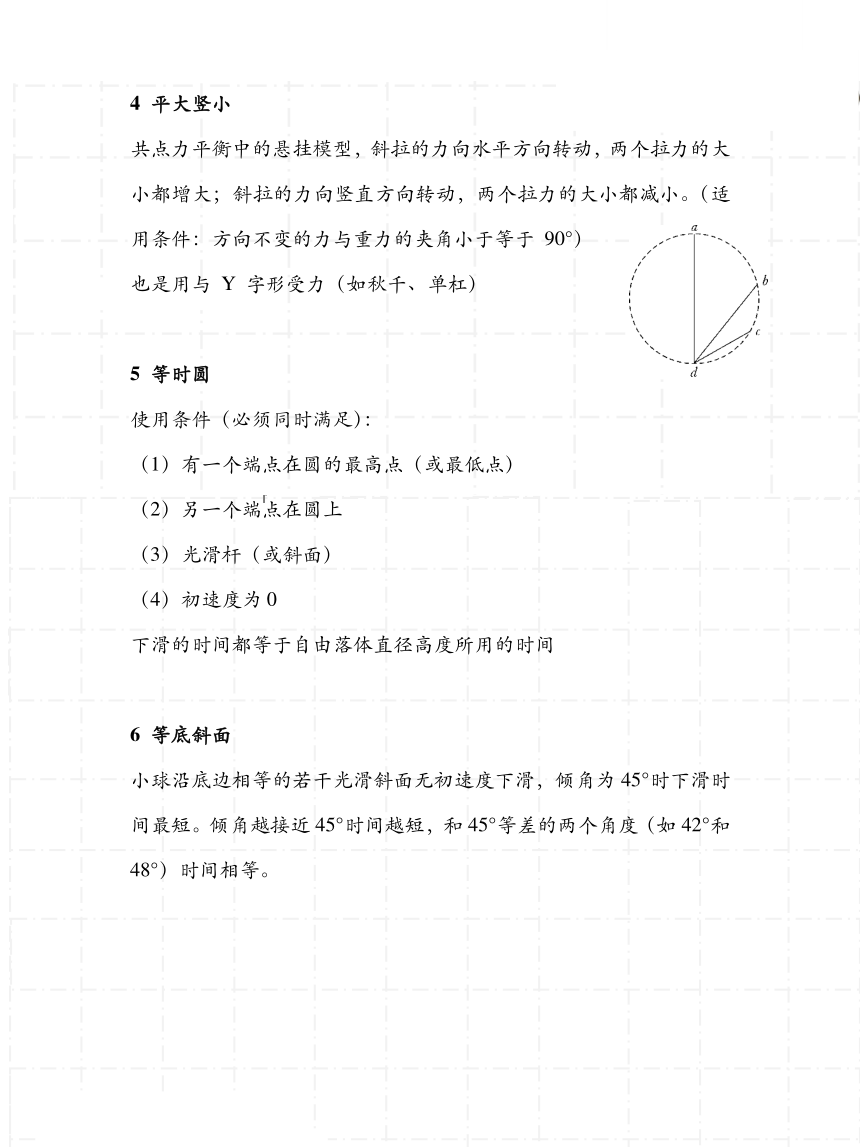 4 平大竖小
共点力平衡中的悬挂模型，斜拉的力向水平方向转动，两个拉力的大
小都增大；斜拉的力向竖直方向转动，两个拉力的大小都减小。（适
用条件：方向不变的力与重力的夹角小于等于 90°）
也是用与 Y 字形受力（如秋千、单杠）
a
b
c
d
5 等时圆
使用条件（必须同时满足）：
（1）有一个端点在圆的最高点（或最低点）
（2）另一个端点在圆上
（3）光滑杆（或斜面）
（4）初速度为 0
下滑的时间都等于自由落体直径高度所用的时间
6 等底斜面
小球沿底边相等的若干光滑斜面无初速度下滑，倾角为 45°时下滑时
间最短。倾角越接近 45°时间越短，和 45°等差的两个角度（如 42°和
48°）时间相等。